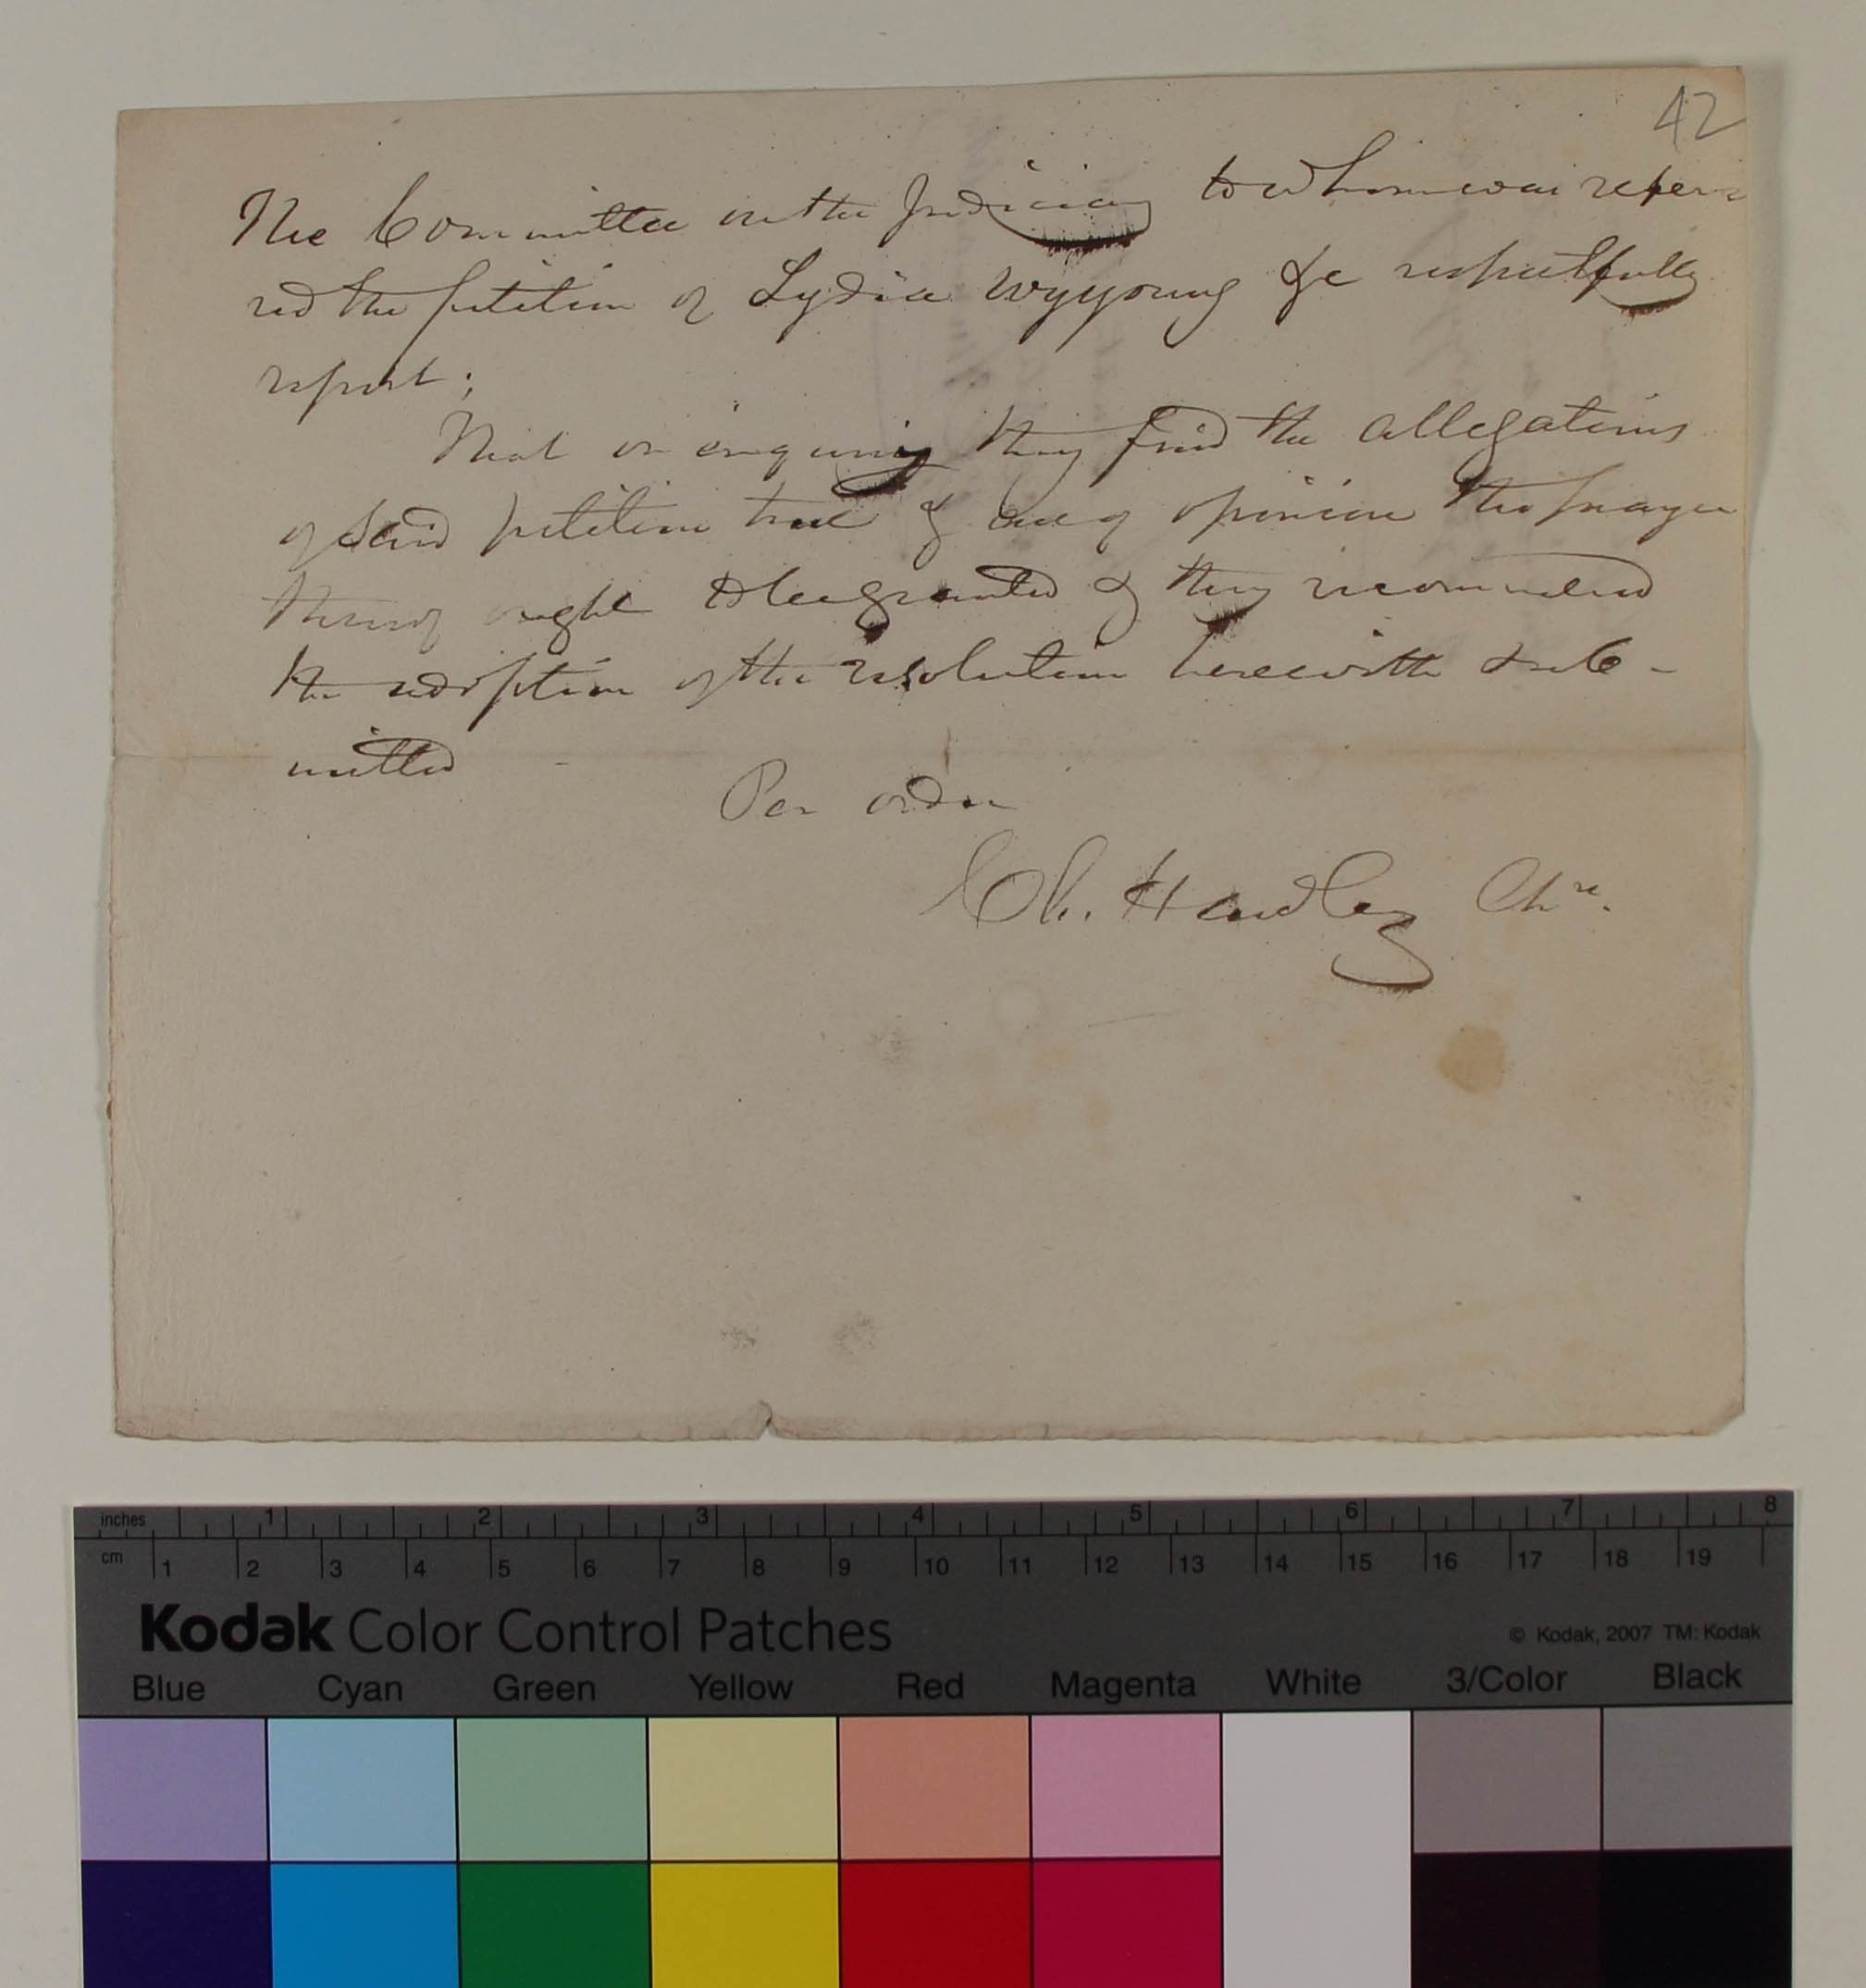 42
The Committee on the Judiciary to whom was refer-
red the petition of Lydia Wyyoung &c respectfully
report;
That on enquiry they find the allegations
of said petition true & are of opinion the prayer
thereof ought to be granted & they recommend
the adoption of the resolution herewith sub-
mitted
Per order
Ch. Hawley Chn.
inches 1 2 3 4 5 6 7 8
cm 1 2 3 4 5 6 7 8 9 10 11 12 13 14 15 16 17 18 19
Kodak Color Control Patches
© Kodak, 2007 TM: Kodak
Blue Cyan Green Yellow Red Magenta White 3/Color Black